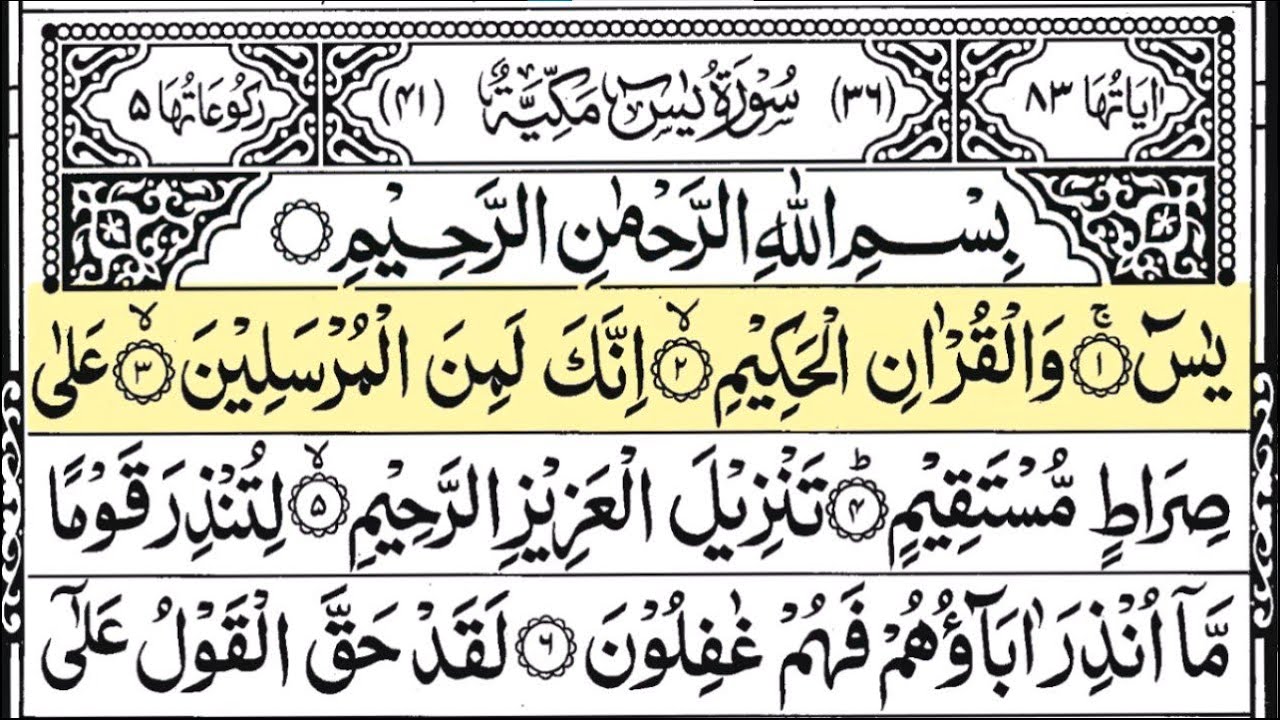 اٰيَاتُهَا ٨٣ (٣٦) سُوْرَةُ يٰسٓ مَكِّيَّةٌ (٤١) رُكُوْعَاتُهَا ٥
بِسْمِ اللّٰهِ الرَّحْمٰنِ الرَّحِيْمِ
يٰسٓ ۚ﴿۱﴾ وَالْقُرْاٰنِ الْحَكِيْمِ ۙ﴿۲﴾ اِنَّكَ لَمِنَ الْمُرْسَلِيْنَ ۙ﴿۳﴾ عَلٰى
صِرَاطٍ مُّسْتَقِيْمٍ ؕ﴿۴﴾ تَنْزِيْلَ الْعَزِيْزِ الرَّحِيْمِ ۙ﴿۵﴾ لِتُنْذِرَ قَوْمًا
مَّآ اُنْذِرَ اٰبَآؤُهُمْ فَهُمْ غٰفِلُوْنَ ﴿۶﴾ لَقَدْ حَقَّ الْقَوْلُ عَلٰٓى